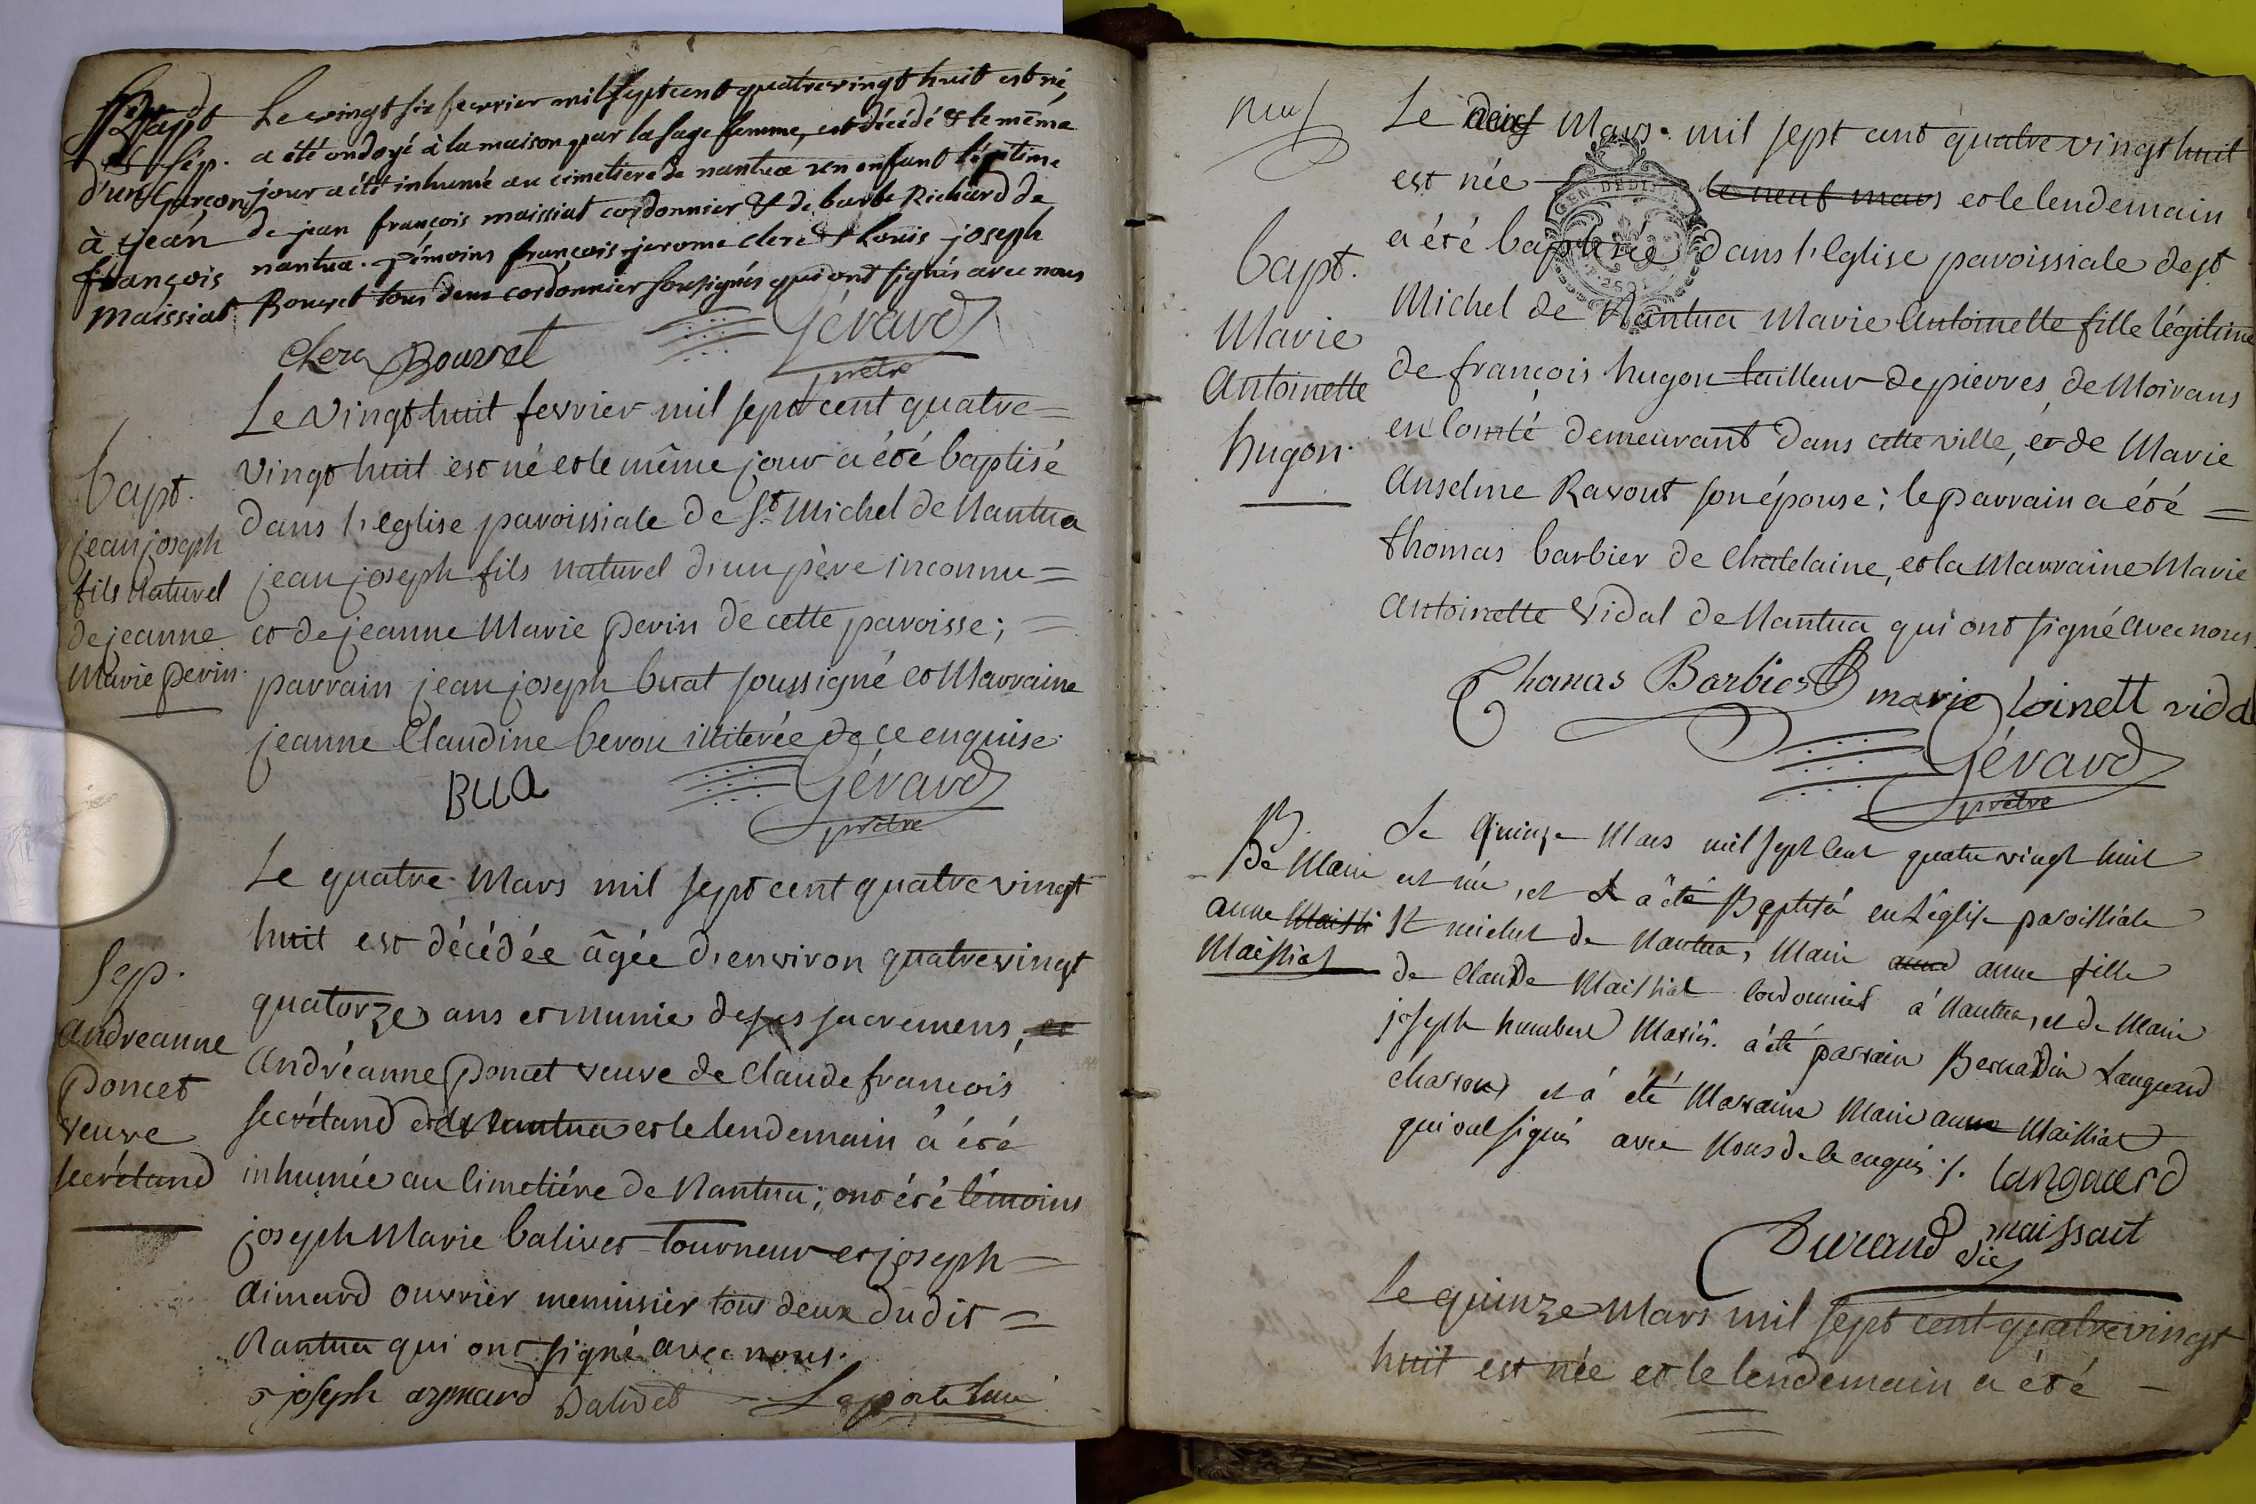 Bapt
et Sep.
d'un Garçon
à jean
françois
maissiat
Le vingt six fevrier mil sept cent quatre vingt huit est né,
a été ondoyé à la maison par la sage femme, est décédé & le même
jour a été inhumé au cimetiere de nantua un enfant légitime
de jean françois maissiat cordonnier & de barbe Richard de
nantua. Témoins françois jerome clerc & Louis joseph
Bouvet tous deux cordonnier soussignés qui ont signés avec nous
Clerc Bouvet Gérard
prêtre
bapt.
jean joseph
fils naturel
de jeanne
Marie perin.
Le vingt huit fevrier mil sept cent quatre =
vingt huit est né et le même jour a été baptisé
dans l'eglise paroissiale de St. Michel de Nantua
jean joseph fils naturel d'un père inconnu =
et de jeanne Marie perin de cette paroisse; =
parrain jean joseph buat soussigné et Marraine
jeanne Claudine berou illiterée de ce enquise.
BUA Gérard
prêtre
Sep.
andreanne
Poncet
veuve
secrétand
Le quatre Mars mil sept cent quatre vingt
huit est décédée âgée d'environ quatre vingt
quatorze ans et munie de ses sacremens, et
andréanne Poncet veuve de Claude françois
secrétand de Nantua et le lendemain a été
inhumée au Cimetiére de Nantua; ont été témoins
joseph Marie balivet tourneur et joseph =
aimard ouvrier menuisier tous deux dudit =
Nantua qui ont signé avec nous.
joseph aymard Balivet Laporte
neuf
bapt.
Marie
Antoinette
hugon.
Le Mars mil sept cent quatre vingt huit
est née le neuf mars et le lendemain
a été baptisée dans l'Eglise paroissiale de st
Michel de Nantua Marie Antoinette fille légitime
de françois hugon tailleur de pierres de Moirans
en Comté demeurant dans cette ville, et de Marie
Anseline Ravout son épouse; le parrain a été =
thomas barbier de Chatelaine, et la Marraine Marie
Antoinette Vidal de Nantua qui ont signé avec nous.
Thomas Barbier marie toinett vidal
Gérard
prêtre
B.
de Marie
anne Maissi
Maissiat
Le Quinze Mars mil sept cent quatre vingt huit
est née, et a été Baptisée en L'église paroissiale
St michel de Nantua, Marie anne anne fille
de Claude Maissiat Cordonnier à Nantua, et de Marie
joseph humbert Mariés. a été parrain Bernardin Languard
charron, et a été Marraine Marie anne Maissiat
qui ont signés avec Nous de ce enquis ./. Languard
Durand vic maissait
Le quinze Mars mil sept cent quatre vingt
huit est née et le lendemain a été –